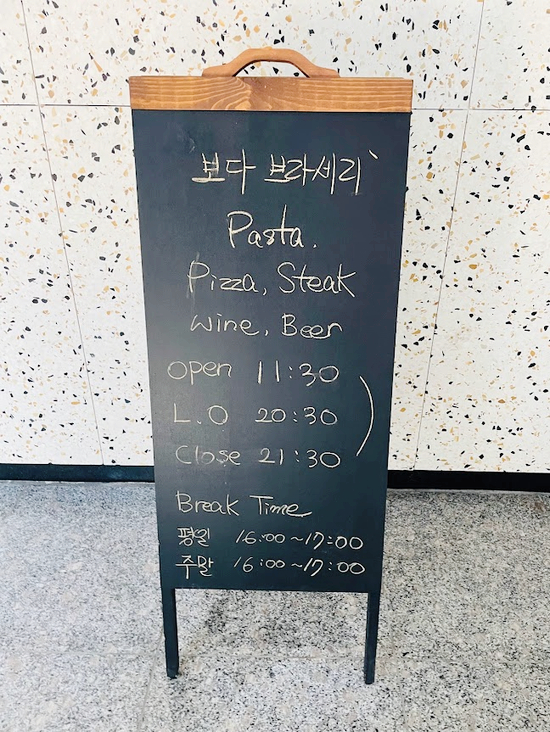 보다 브라세리
Pasta.
Pizza, Steak
Wine, Beer
Open 11:30
L.O 20:30
Close 21:30
Break Time
평일 16:00~17:00
주말 16:00~17:00